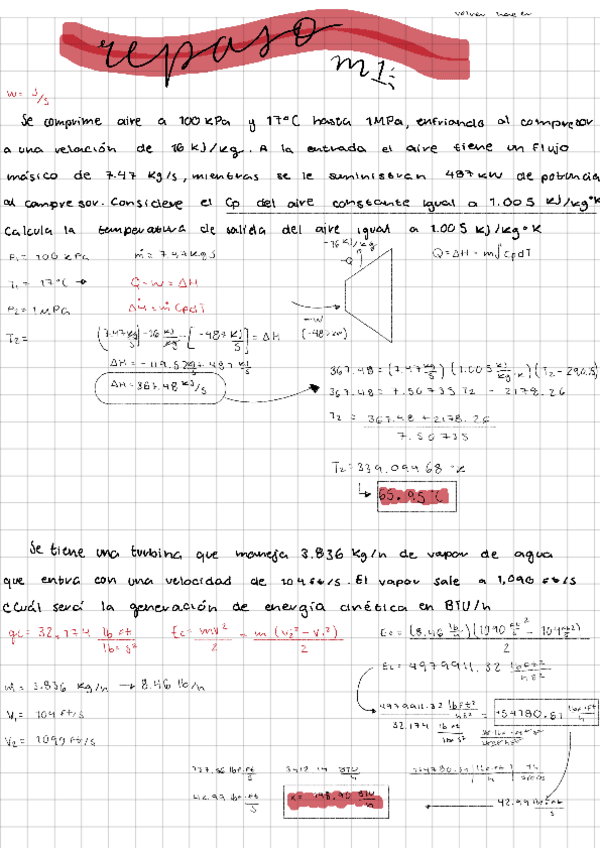 volver hacer
repaso
m1:
w = J/s
Se comprime aire a 100 kPa y 17°C hasta 1MPa, enfriando al compresor
a una velación de 16 kJ/kg. A la entrada el aire tiene un flujo
másico de 7.47 kg/s, mientras se le suministran 487 kW de potencia
al compresor. Considere el Cp del aire constante igual a 1.005 kJ/kg°K
Calcula la temperatura de salida del aire igual a 1.005 kJ/kg°K
P₁ = 100 kPa ṁ = 7.47kg/s -16 kJ/kg Q=ΔH = m∫CpdT
-Q
T₁ = 17°C → Q-W = ΔH
P₂= 1 MPa ΔH = ṁ CpdT
-W
T₂= (7.47 kg/s)-16 kJ/kg - [-487 kJ/s] = ΔH (-487 kW)
ΔH = -119.52 + 487 kJ/s
ΔH = 367.48 kJ/s
367.48 = (7.47 kg/s) (1.005 kJ/kg·K) (T₂ - 290.15)
367.48 = 7.50735 T₂ - 2178.26
T₂ = 367.48 + 2178.26
7.50735
T₂ = 339.09968 °K
65.95°C
Se tiene una turbina que maneja 3.836 kg/h de vapor de agua
que entra con una velocidad de 104 ft/s. El vapor sale a 1,090 ft/s
¿Cuál será la generación de energía cinética en BTU/h
gc = 32.174 lb ft/lbf s² Ec = mv²/2 = m (v₂² - v₁²)/2 Ec = (8.46 lb/h)(1090 ft²/s - 104 ft²/s)/2
Ec = 4979911.32 lb ft²/h s²
ṁ = 3.836 kg/h → 8.46 lb/h
V₁ = 104 ft/s
4979911.32 lb ft²/h s² / 32.174 lb ft/lbf s² = 154780.81 lbf·ft/h
V₂ = 1090 ft/s
42.99 lbf·ft/s